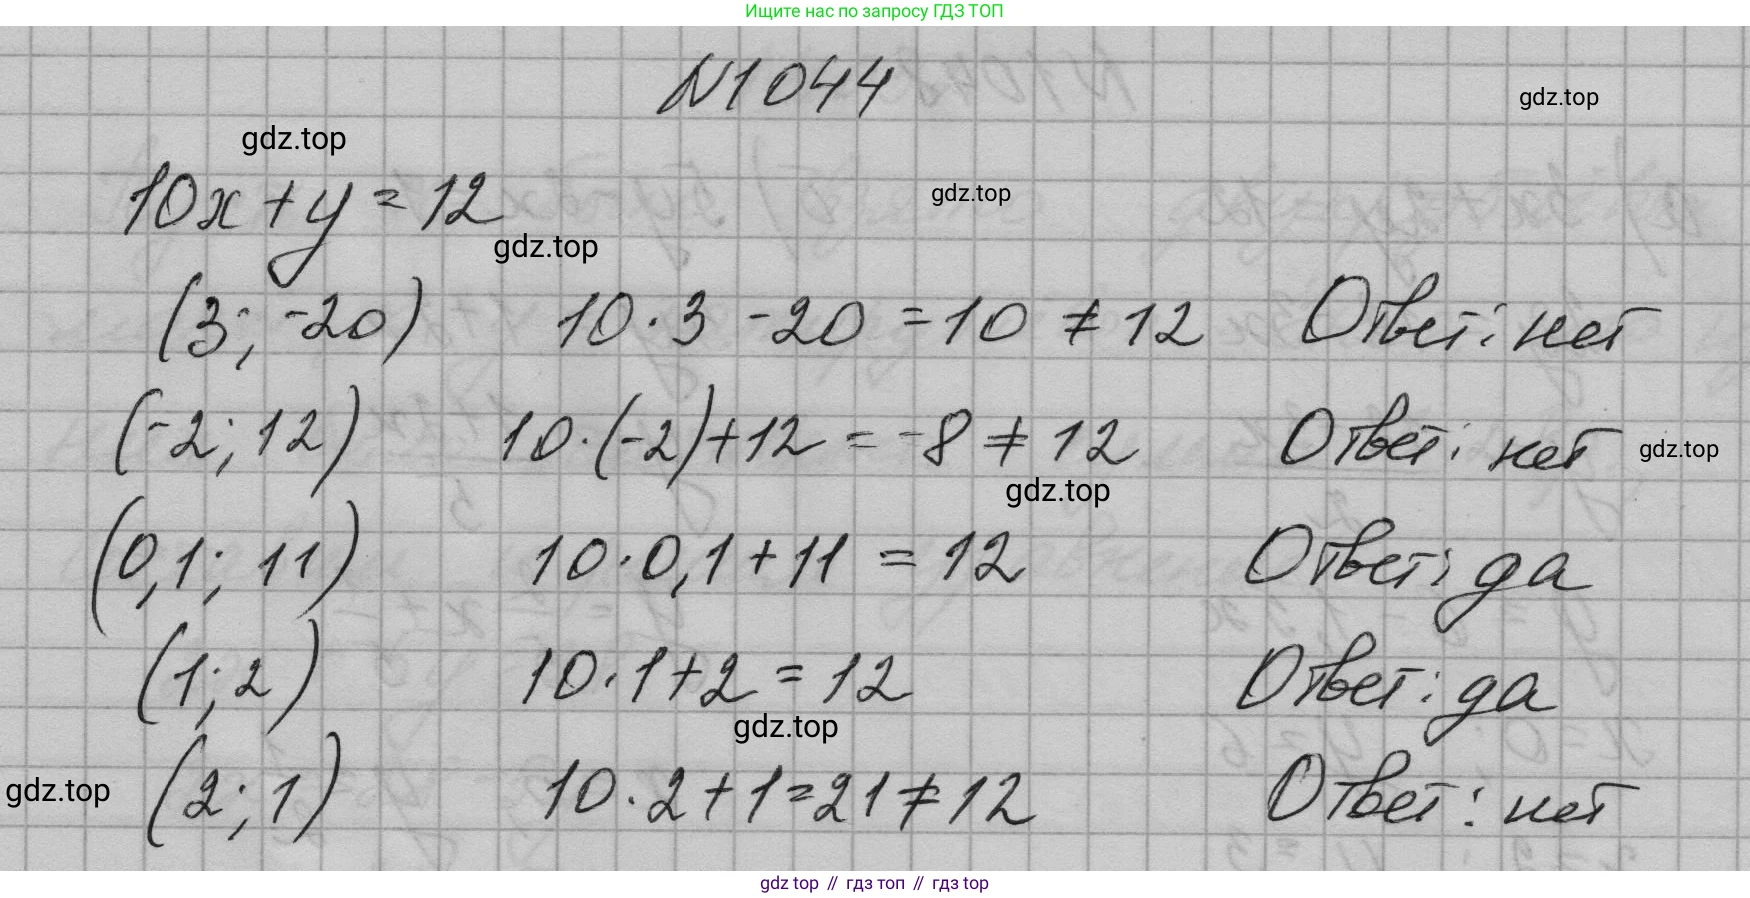 Ищите нас по запросу ГДЗ ТОП
N1044
gdz.top
gdz.top
10x + y = 12
gdz.top
gdz.top
(3; -20) 10 · 3 - 20 = 10 ≠ 12 Ответ: нет
(-2; 12) 10 · (-2) + 12 = -8 ≠ 12 Ответ: нет
gdz.top
gdz.top
(0,1; 11) 10 · 0,1 + 11 = 12 Ответ: да
(1; 2) 10 · 1 + 2 = 12 Ответ: да
gdz.top
gdz.top
(2; 1) 10 · 2 + 1 = 21 ≠ 12 Ответ: нет
gdz top // гдз топ // гдз top